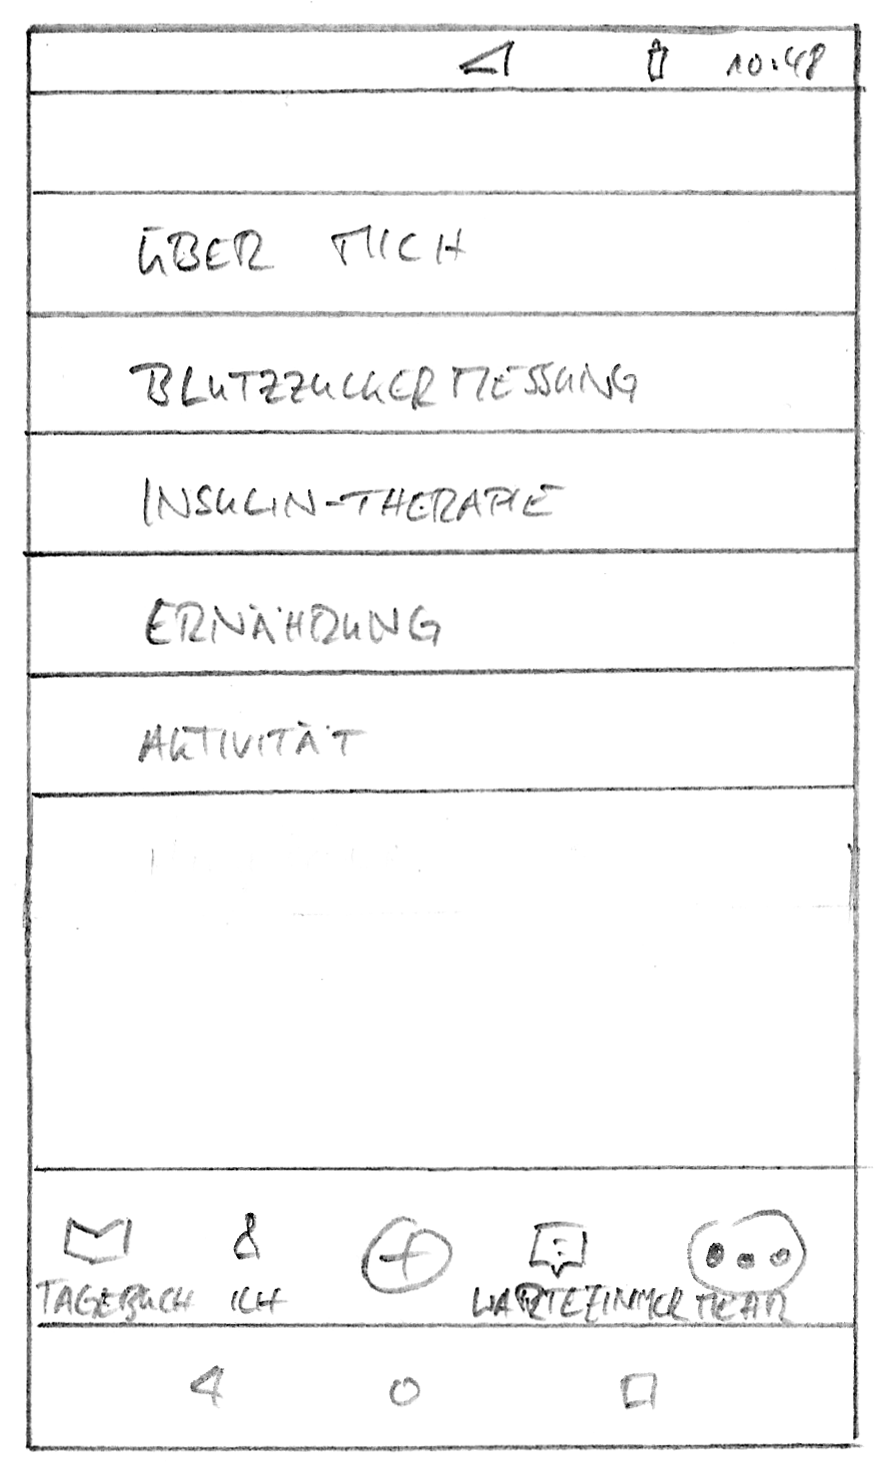 10:48
ÜBER MICH
BLUTZZUCKERMESSUNG
INSULIN-THERAPIE
ERNÄHRUNG
AKTIVITÄT
TAGEBUCH ICH WARTEZIMMER